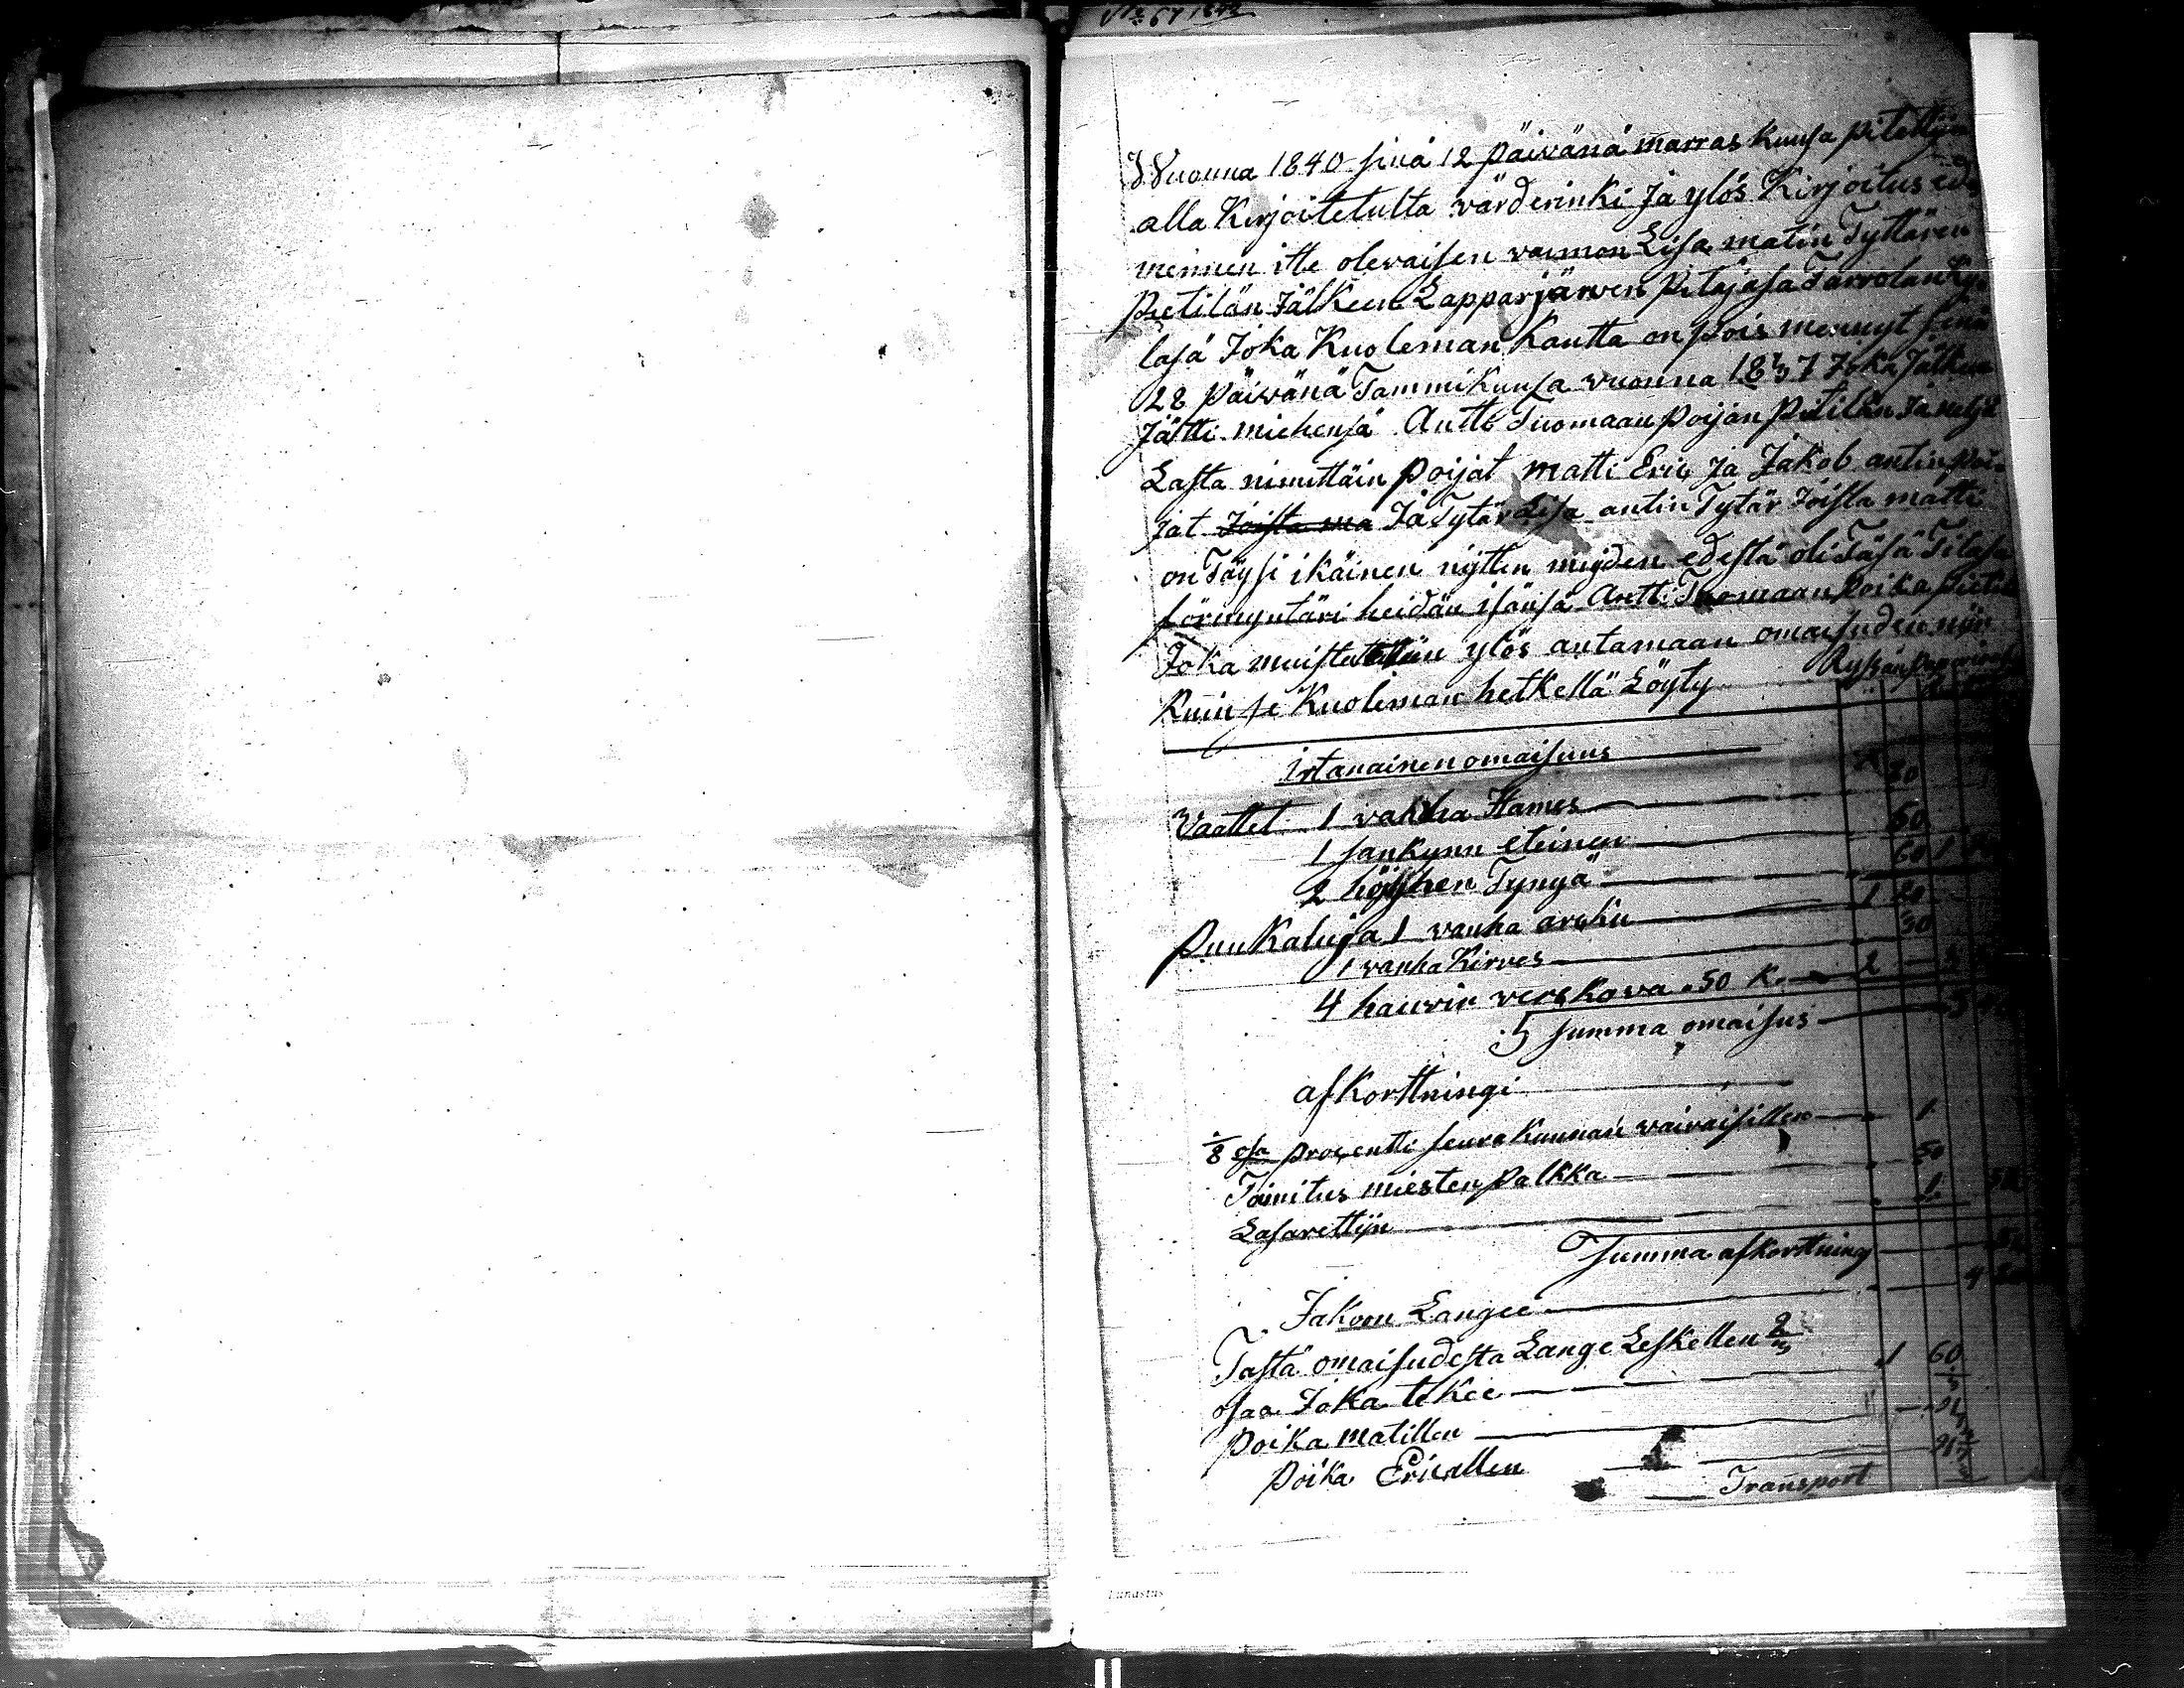 No 67 1842
Wuonna 1840 sinä 12 päivänä marras Kuusa pitettiin
alla Kirjoitetulta värderinki ja ylös Kirjoitus ede
mennen itte olevaisen vaimon Lisa matin Tyttären
Pietilän Jälkeen Lapparjärven Pitäjäsä Tarvolan Ky-
läsä Joka Kuoleman Kautta on pois mennyt sinä
28 Päivänä Tammikuusa vuonna 1837 Joka Jälkeen
Jätti miehensä Antti Tuomaan poijan Pietilän Ja neljä
Lasta nimittäin poijat matti Eric ja Jakob antin poi-
jat Joista ma Ja Tytär Lisa antin Tytär Joista matti
on Täysi ikäinen nytten miyden edestä oli Täsä Tilasa
förmyntäri heidän isänsä Antti Tuomaan Poika Pietilä
Joka muistutettiin ylös antamaan omaisuden niin
Kuin se Kuoleman hetkellä Löyty
irtanainen omaisuus 20
Vaattet 1 vanha Hames
1 sankynn eteinen 60
2 höyhen Tynyä 60
Puu Kaluja 1 vanha arkku 1 20
1 vanha Kirves 30
4 hauvir verskova a 50 K. 2
summa omaisus 5
afkorttningi
1/8 osa prosentti seurakunnan vaivaisillen 1
Toimitus miesten palkka 50
Lasarettijn 1 52
Summa afkorttning 52
Jakoon Langee 4
Tästä omaisudesta Lange Leskellen
osaa Joka tekee 1 60
Poika matillen
Poika Ericallen
Transport
Lunastus